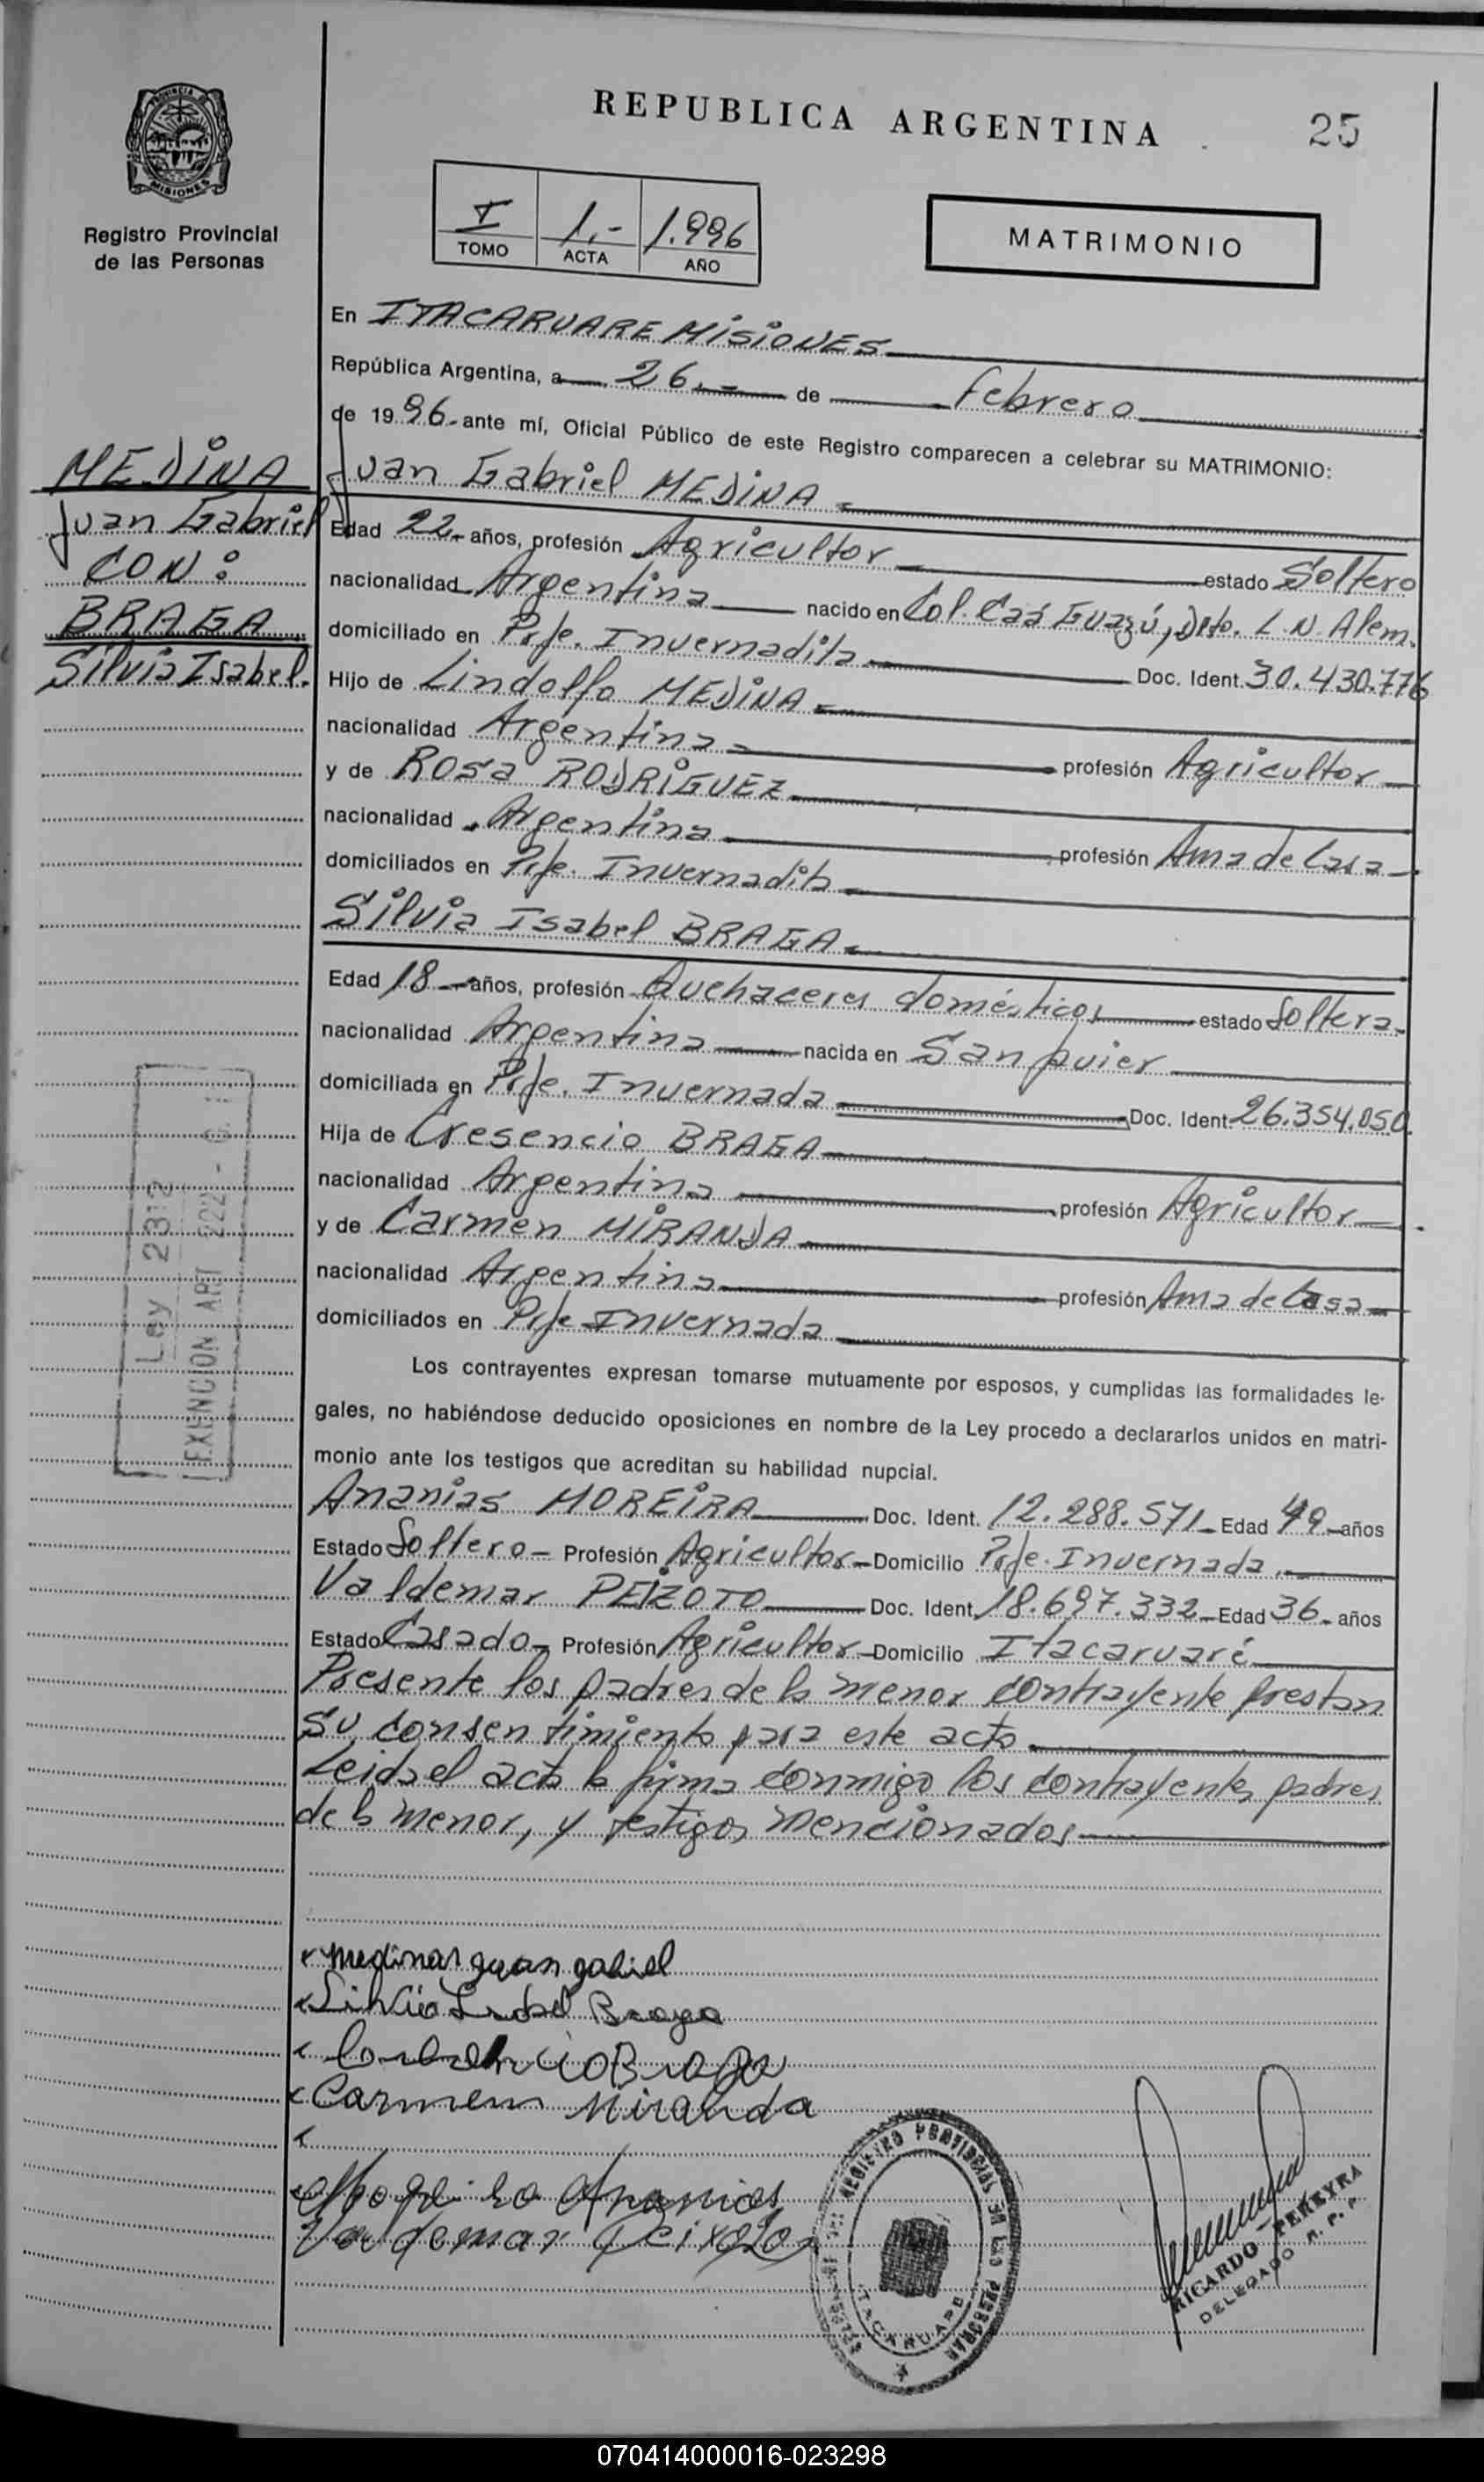 REPUBLICA ARGENTINA
25
MISIONES
Registro Provincial
de las Personas
I 1.- 1.996
TOMO ACTA AÑO
MATRIMONIO
En ITACARUARE MISIONES
República Argentina, a 26.- de Febrero
de 1996- ante mí, Oficial Público de este Registro comparecen a celebrar su MATRIMONIO:
MEDINA
Juan Gabriel
CON:
BRAGA
Silvia Isabel.
Juan Gabriel MEDINA
Edad 22- años, profesión Agricultor estado Soltero
nacionalidad Argentina nacido en Col. Caá Guazú, Dpto. L.N. Alem.
domiciliado en Pje. Invernadita Doc. Ident. 30.430.776
Hijo de Lindolfo MEDINA
nacionalidad Argentina profesión Agricultor
y de Rosa RODRIGUEZ
nacionalidad Argentina profesión Ama de Casa
domiciliados en Pje. Invernadita
Silvia Isabel BRAGA
Edad 18 años, profesión Quehaceres domésticos estado Soltera
nacionalidad Argentina nacida en San Javier
domiciliada en Pje. Invernada Doc. Ident. 26.354.050
Hija de Cresencio BRAGA
nacionalidad Argentina profesión Agricultor
y de Carmen MIRANDA
nacionalidad Argentina profesión Ama de Casa
domiciliados en Pje Invernada
Ley 2312
EXENCION ART 222
Los contrayentes expresan tomarse mutuamente por esposos, y cumplidas las formalidades le-
gales, no habiéndose deducido oposiciones en nombre de la Ley procedo a declararlos unidos en matri-
monio ante los testigos que acreditan su habilidad nupcial.
Ananias MOREIRA Doc. Ident. 12.288.571 Edad 49 años
Estado Soltero Profesión Agricultor Domicilio Pje. Invernada
Valdemar PEIZOTO Doc. Ident. 18.697.332 Edad 36 años
Estado Casado Profesión Agricultor Domicilio Itacaruaré
Presente los padres de la menor contrayente prestan
su consentimiento para este acto
Leida el acta la firma conmigo los contrayentes, padres
de la menor, y testigos mencionados
medina juan gabriel
Silvia Isabel Braga
Braga
Carmen Miranda
Ananias
Valdemar Peixoto
REGISTRO PROVINCIAL DE LAS PERSONAS
ITACARUARE
RICARDO PEREYRA
DELEGADO R. P. P.
070414000016-023298